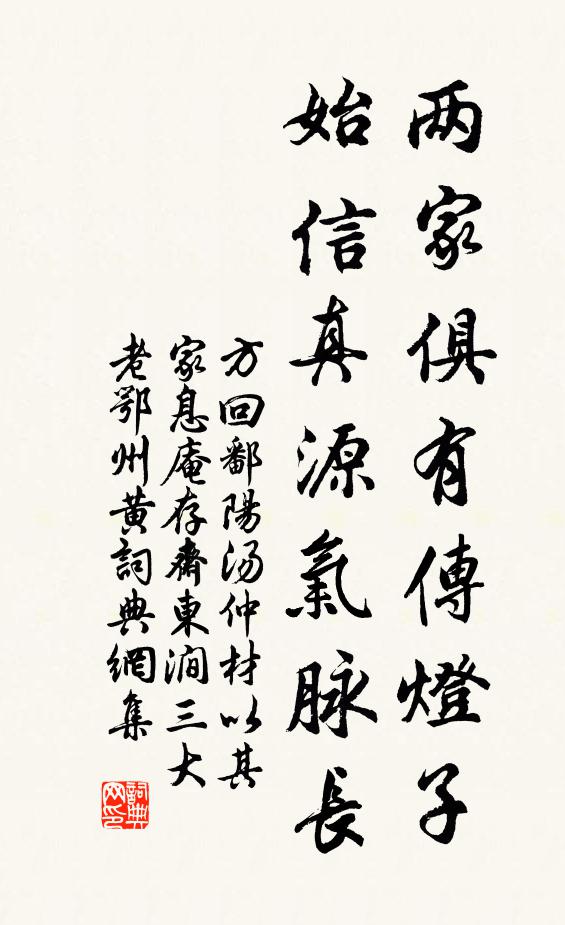 两家俱有傳燈子
始信真源氣脉長
方回鄱陽汤仲材以其
家息庵存齋東澗三大
老鄂州黄詞典網集
詞典网印